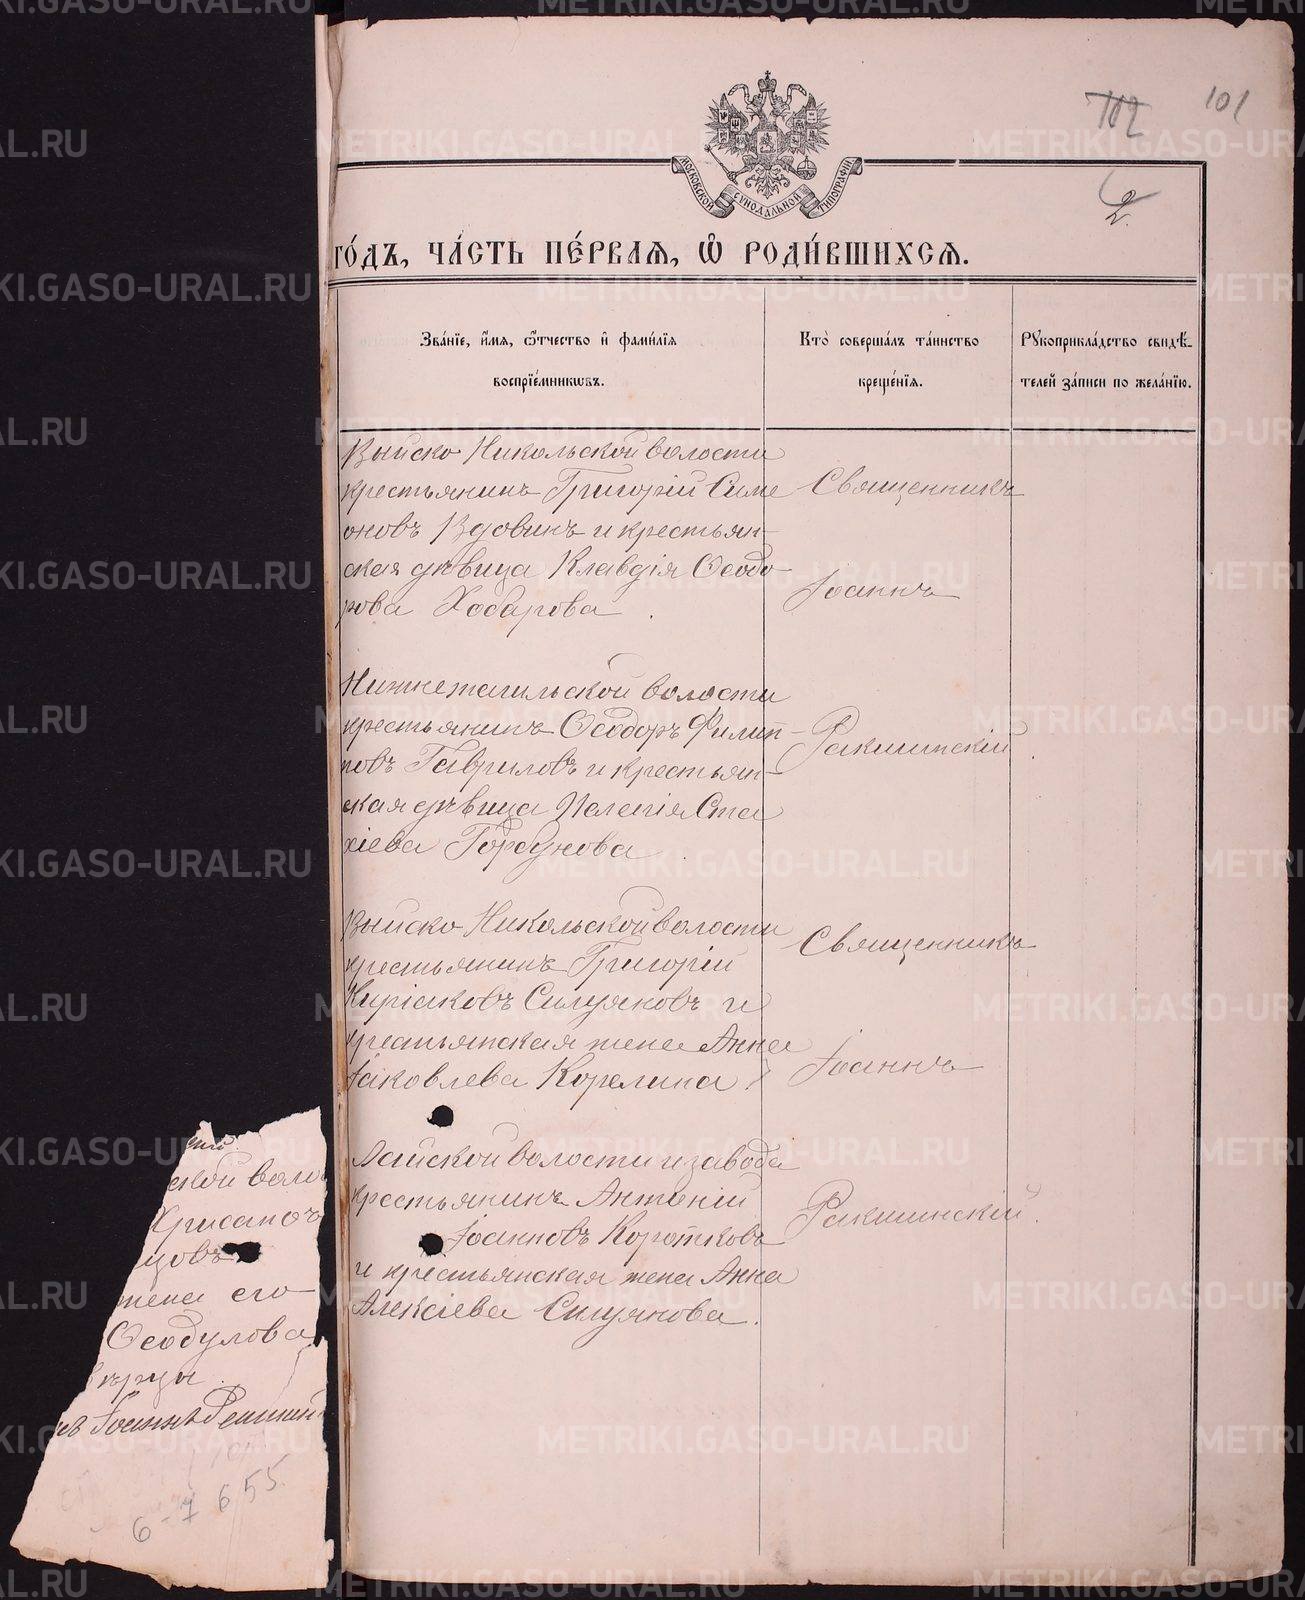 102 101
2.
МОСКОВСКОЙ СѴНОДАЛЬНОЙ ТИПОГРАФІИ
го́дъ, ча́сть пе́рваѧ, ѡ҆ роди́вшихсѧ.
Зва́нїе, и҆́мѧ, ѻ҆́тчество и҆ фами́лїѧ
воспрїе́мникѡвъ.
Кто̀ соверша́лъ та́инство
креще́нїѧ.
Рꙋкоприкла́дство свидѣ́-
телей за́писи по жела́нїю.
Выйско Никольской волости
крестьянинъ Григорій Симе
оновъ Вдовинъ и крестьян-
ская дѣвица Клавдія Ѳеодо-
рова Хобарова.
Священникъ
Іоаннъ
Нижнетагильской волости
крестьянинъ Ѳеодоръ Филип-
повъ Гавриловъ и крестьян-
ская дѣвица Пелагія Ста
хіева Горбунова.
Ракшинскій
Выйско Никольской волости
крестьянинъ Григорій
Киріаковъ Силуяновъ и
крестьянская жена Анна
Іаковлева Корелина
Священникъ
Іоаннъ
Лайской волости и завода
крестьянинъ Антоній
Іоанновъ Коротковъ
и крестьянская жена Анна
Алексіева Силуянова.
Ракшинскій.
ской воло
Хрисанѳъ
цовъ
жена его
Ѳеодулова
Іоаннъ
6-7 655
METRIKI.GASO-URAL.RU